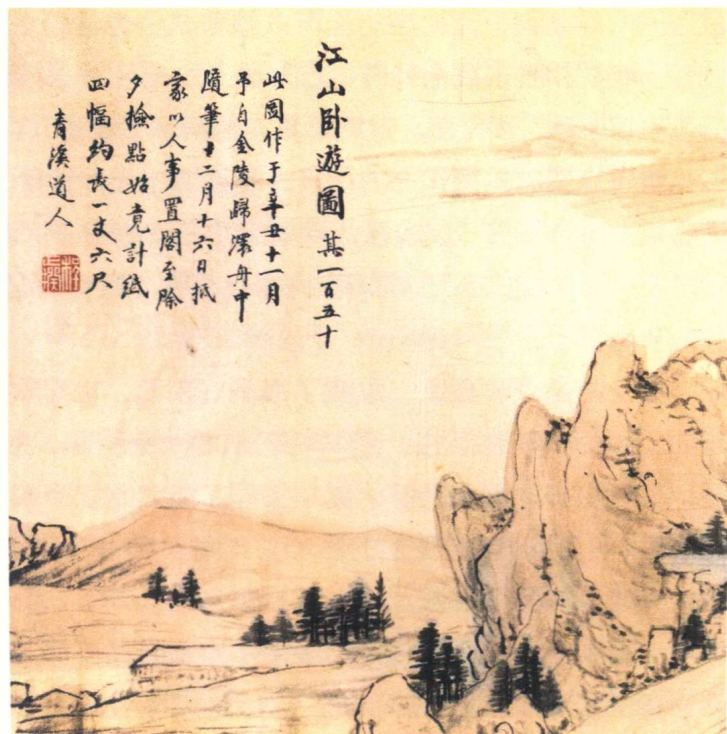 江山卧遊圖其一百五十
此圖作于辛丑十一月
予自金陵歸澤舟中
隨筆十二月十六日抵
家以人事置閣至除
夕撿點始竟計紙
四幅約長一丈六尺
青溪道人